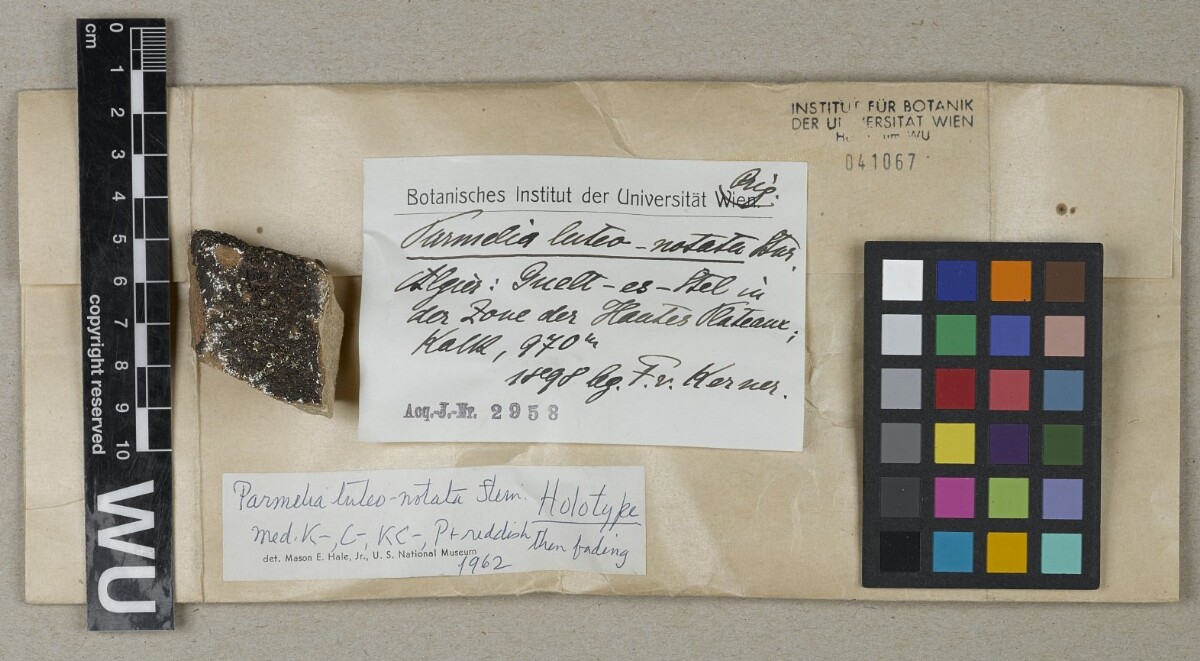 0
cm
1
2
3
4
5
6
7
8
9
10
copyright reserved
WU
INSTITUT FÜR BOTANIK
DER UNIVERSITÄT WIEN
WU
041067
Botanisches Institut der Universität Wien.
Orig.
Parmelia luteo-notata Stnr.
Algier: Guelt-es-Stel in
der Zone der Hautes Plateaux;
Kalk, 970 m
1898 lg. F. v. Kerner.
Acq.-J.-Nr. 2958
Parmelia luteo-notata Stein. Holotype
med. K-, C-, KC-, P+ reddish then fading
det. Mason E. Hale, Jr., U. S. National Museum
1962